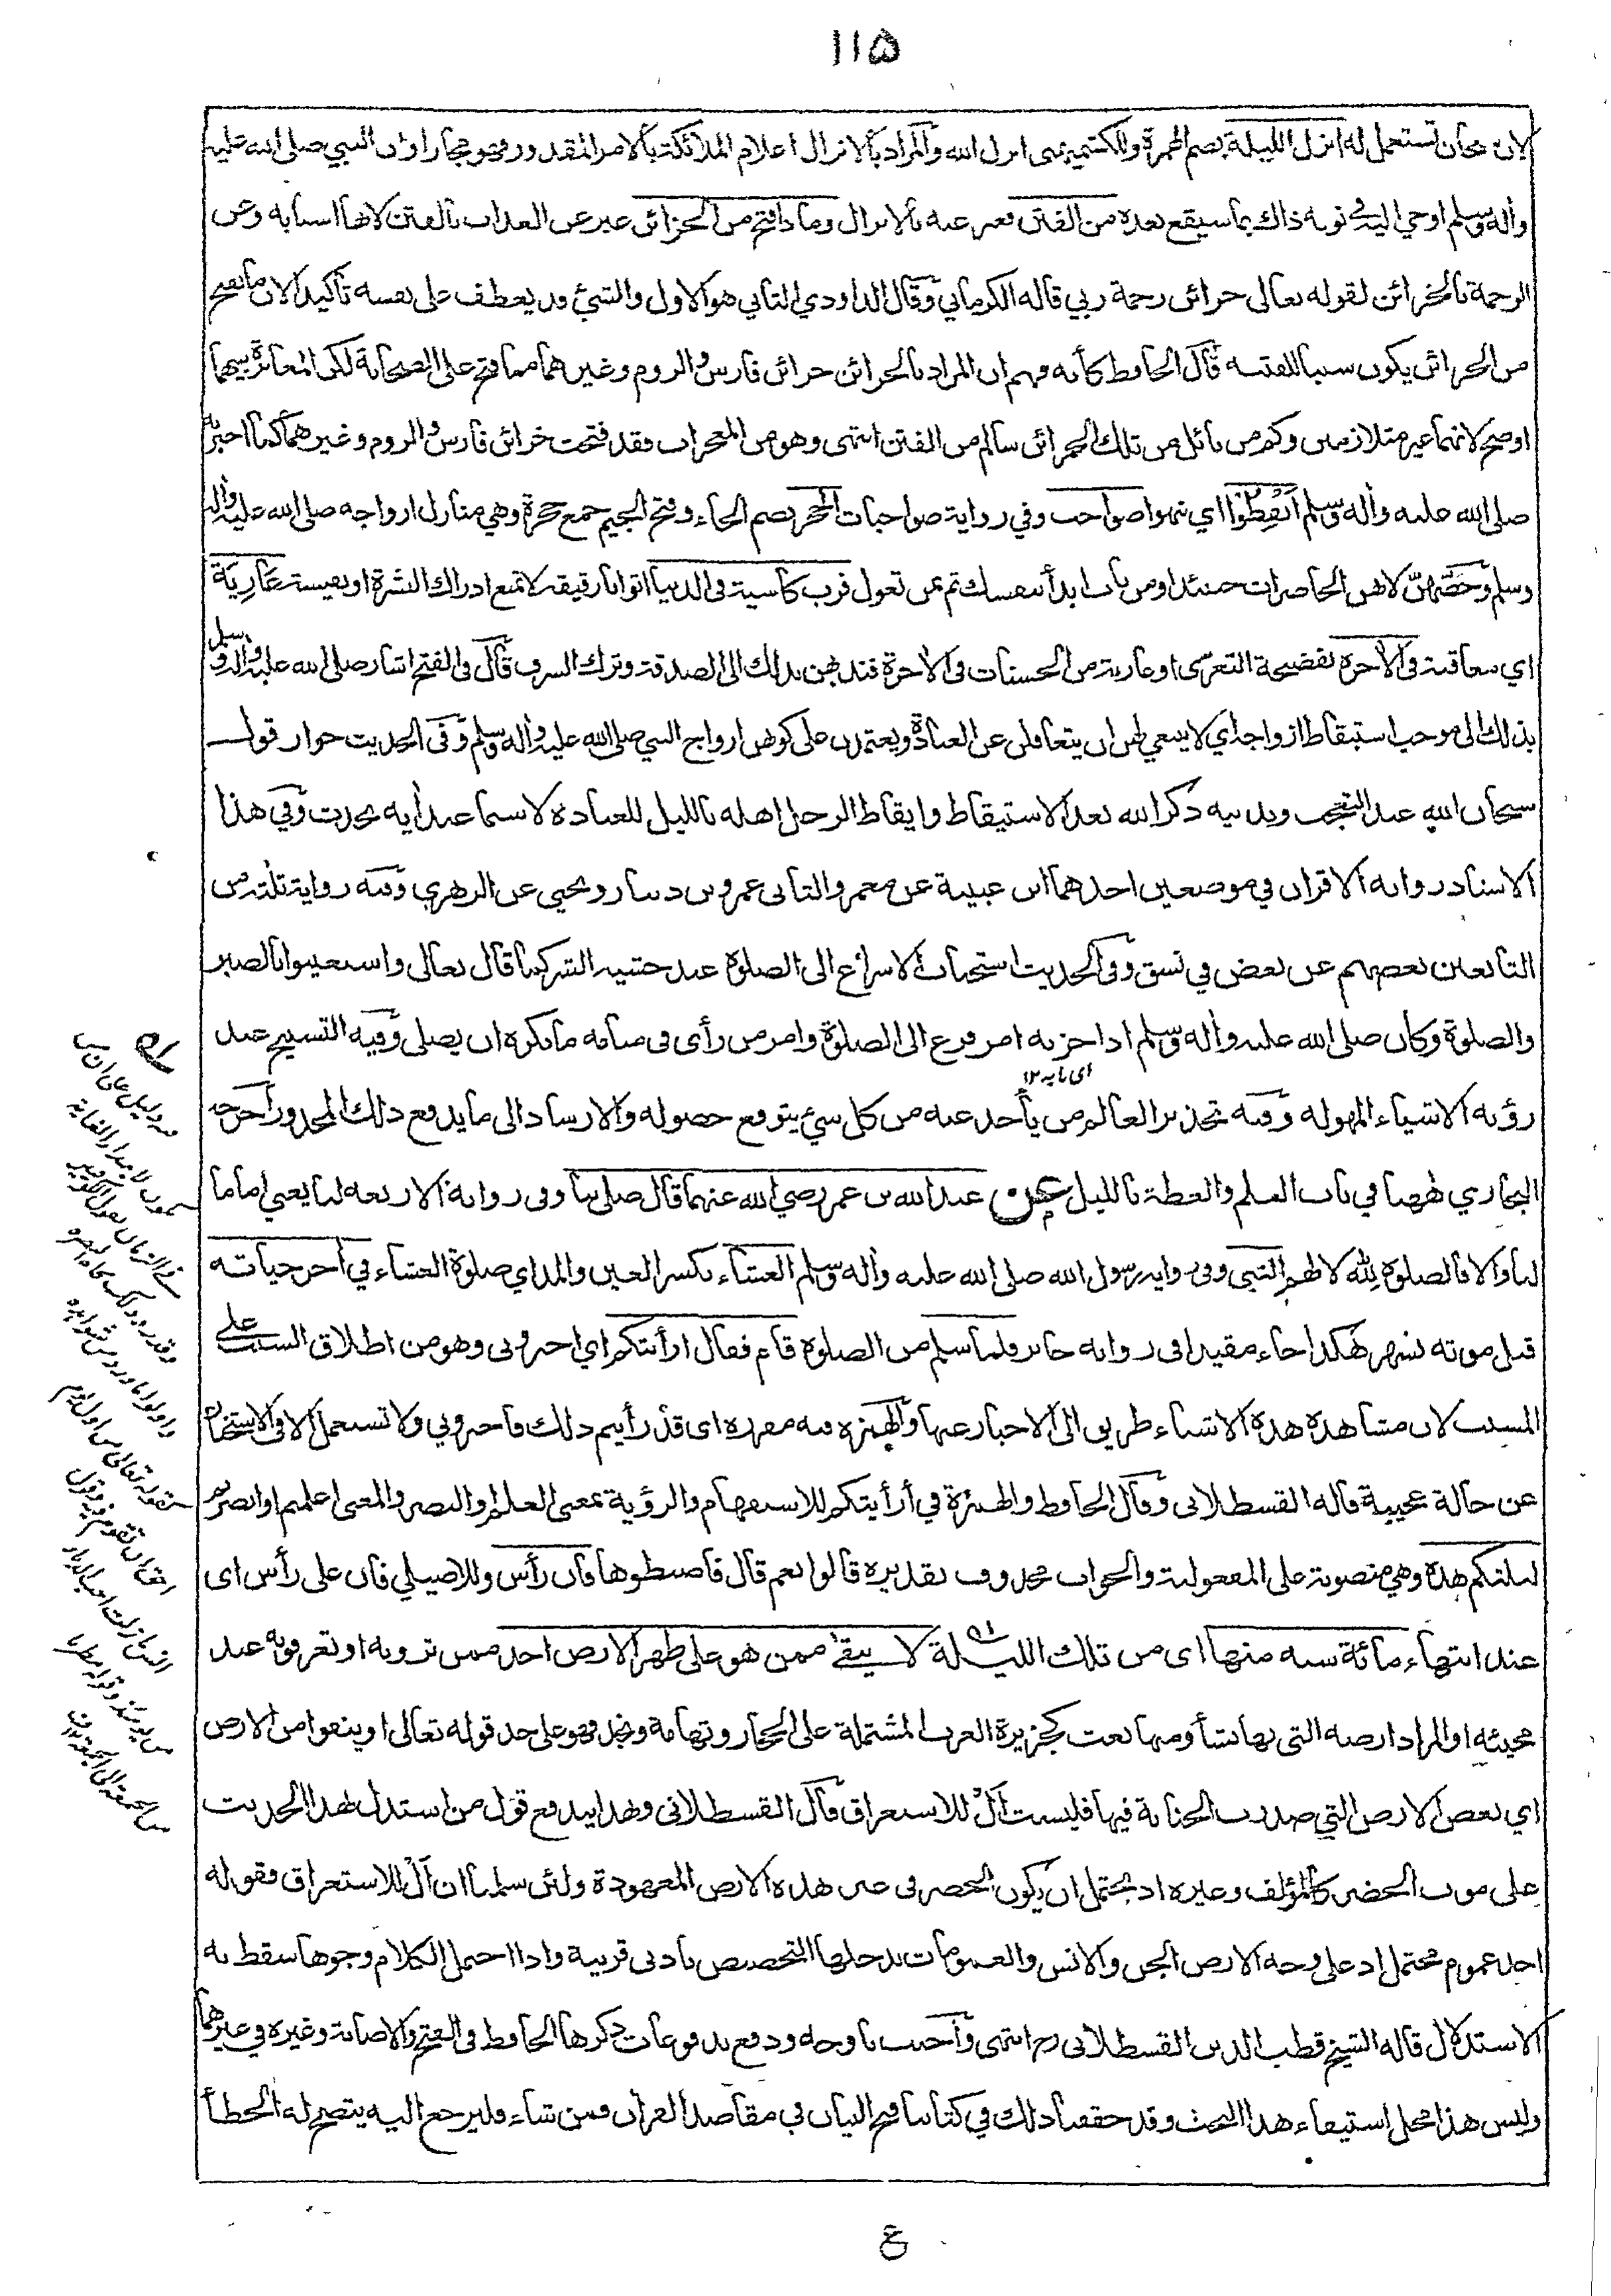 ١١٥
لان سبحان تستعمل له انزل الليلة بضم الهمزة وللكشميهني انزل الله والمراد بالانزال اعلام الملائكة بالامر المقدور فهو مجاز او ان النبي صلى الله عليه
واله وسلم اوحي اليه في نومه ذاك بما سيقع بعده من الفتن فعبر عنه بالانزال وماذا فتح من الخزائن عبر عن العذاب بالفتن لانها اسبابه وعن
الرحمة بالخزائن لقوله تعالى خزائن رحمة ربي قاله الكرماني وقال الداودي الثاني هو الاول والشيء قد يعطف على نفسه تأكيدا لان ما يفتح
من الخزائن يكون سببا للفتنة قال الحافظ كأنه فهم ان المراد بالخزائن خزائن فارس والروم وغيرهما مما فتح على الصحابة لكن المغايرة بينهما
اوضح لانهما غير متلازمين وكم من نائل من تلك الخزائن سالم من الفتن انتهى وهو من المعجزات فقد فتحت خزائن فارس والروم وغيرهما كما اخبر به
صلى الله عليه واله وسلم أيقظوا اي نبهوا صواحب وفي رواية صواحبات الحجر بضم الحاء وفتح الجيم جمع حجرة وهي منازل ازواجه صلى الله عليه واله
وسلم وخصهن لانهن الحاضرات حينئذ او من باب ابدأ بنفسك ثم بمن تعول فرب كاسية في الدنيا اثوابا رقيقة لا تمنع ادراك البشرة او نفيسة عارية
اي معاقبة في الآخرة بفضيحة التعري او عارية من الحسنات في الآخرة فندبهن بذلك الى الصدقة وترك السرف قال في الفتح اشار صلى الله عليه واله وسلم
بذلك الى موجب استيقاظ ازواجه اي لا ينبغي لهن ان يتغافلن عن العبادة ويعتمدن على كونهن ازواج النبي صلى الله عليه واله وسلم وفي الحديث جواز قول
سبحان الله عند التعجب وندبية ذكر الله بعد الاستيقاظ وايقاظ الرجل اهله بالليل للعبادة لا سيما عند أية تحدث وفي هذا
الاسناد رواية الاقران في موضعين احدهما ابن عيينة عن معمر والثاني عمرو بن دينار ويحيى عن الزهري وفيه رواية ثلثة من
التابعين بعضهم عن بعض في نسق وفي الحديث استحباب الاسراع الى الصلوة عند خشية الشر كما قال تعالى واستعينوا بالصبر
والصلوة وكان صلى الله عليه واله وسلم اذا حزبه امر فزع الى الصلوة وامر من رأى في منامه ما يكره ان يصلي وفيه التسبيح عند
اى نابه ١٢
رؤية الاشياء المهولة وفيه تحذير العالم من يأخذ عنه من كل شيء يتوقع حصوله والارشاد الى ما يدفع ذلك المحذور أخرجه
البخاري ههنا في باب العلم والعظة بالليل عن عبد الله بن عمر رضي الله عنهما قال صلى بنا وفي رواية الاربعة لنا يعني إماما
لنا والا فالصلوة لله لا لهم النبي وفي رواية رسول الله صلى الله عليه واله وسلم العشاء بكسر العين والمد اي صلوة العشاء في آخر حياته
قبل موته بشهر هكذا جاء مقيدا في رواية جابر فلما سلم من الصلوة قام فقال ارأيتكم اي اخبروني وهو من اطلاق السبب على
المسبب لان مشاهدة هذه الاشياء طريق الى الاخبار عنها والهمزة فيه مقررة اى قد رأيتم ذلك فاخبروني ولا تستعمل الا في الاستخبار
عن حالة عجيبة قاله القسطلاني وقال الحافظ والهمزة في أرأيتكم للاستفهام والرؤية بمعنى العلم او البصر والمعنى اعلمتم او ابصرتم
ليلتكم هذه وهي منصوبة على المفعولية والجواب محذوف تقديره قالوا نعم قال فاضبطوها فان رأس وللاصيلي فان على رأس اى
عند انتهاء مائة سنة منها اى من تلك الليلة لا يبقى ممن هو على ظهر الارض احد ممن ترونه او تعرفونه عند
مجيئه او المراد ارضه التي بها نشأ ومنها بعث كجزيرة العرب المشتملة على الحجاز وتهامة ونجد فهو على حد قوله تعالى او ينفوا من الارض
اي بعض الارض التي صدرت الجناية فيها فليست أل للاستغراق قال القسطلاني وبهذا يندفع قول من استدل بهذا الحديث
على موت الخضر كالمؤلف وغيره اذ يحتمل ان يكون الخضر في غير هذه الارض المعهودة ولئن سلمنا ان أل للاستغراق فقوله
احد عموم محتمل اذ على وجه الارض الجن والانس والعمومات يدخلها التخصيص بادنى قرينة واذا احتمل الكلام وجوها سقط به
الاستدلال قاله الشيخ قطب الدين القسطلاني رح انتهى وأجيب باوجه ودفع بدفوعات ذكرها الحافظ في الفتح والاصابة وغيره في غيرهما
وليس هذا محل استيفاء هذا البحث وقد حققنا ذلك في كتابنا فتح البيان في مقاصد القرآن فمن شاء فليرجع اليه يتضح له الخطأ
ع